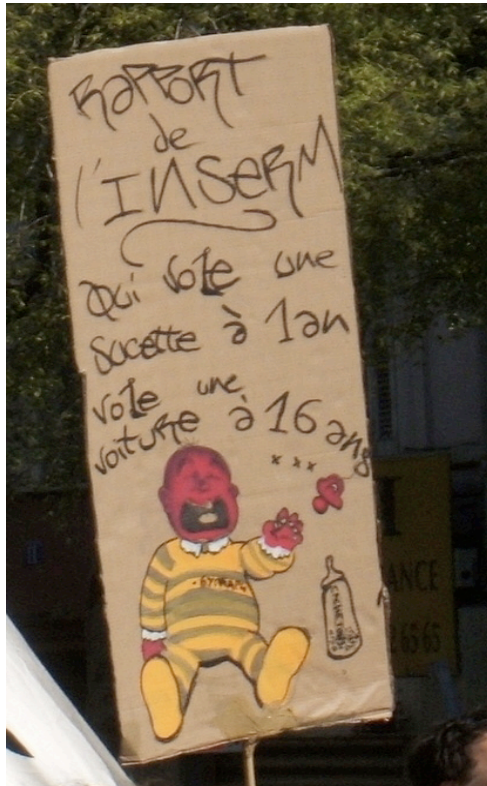 RAPPORT
de
l'INSERM
Qui vole une
sucette à 1an
vole une
voiture à 16 ans
ANCE
26565